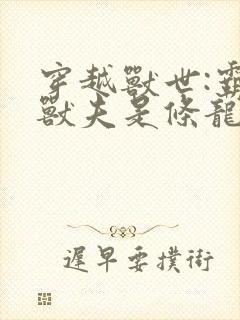 穿越獸世:霸
獸夫是條龍
遲早要撲街